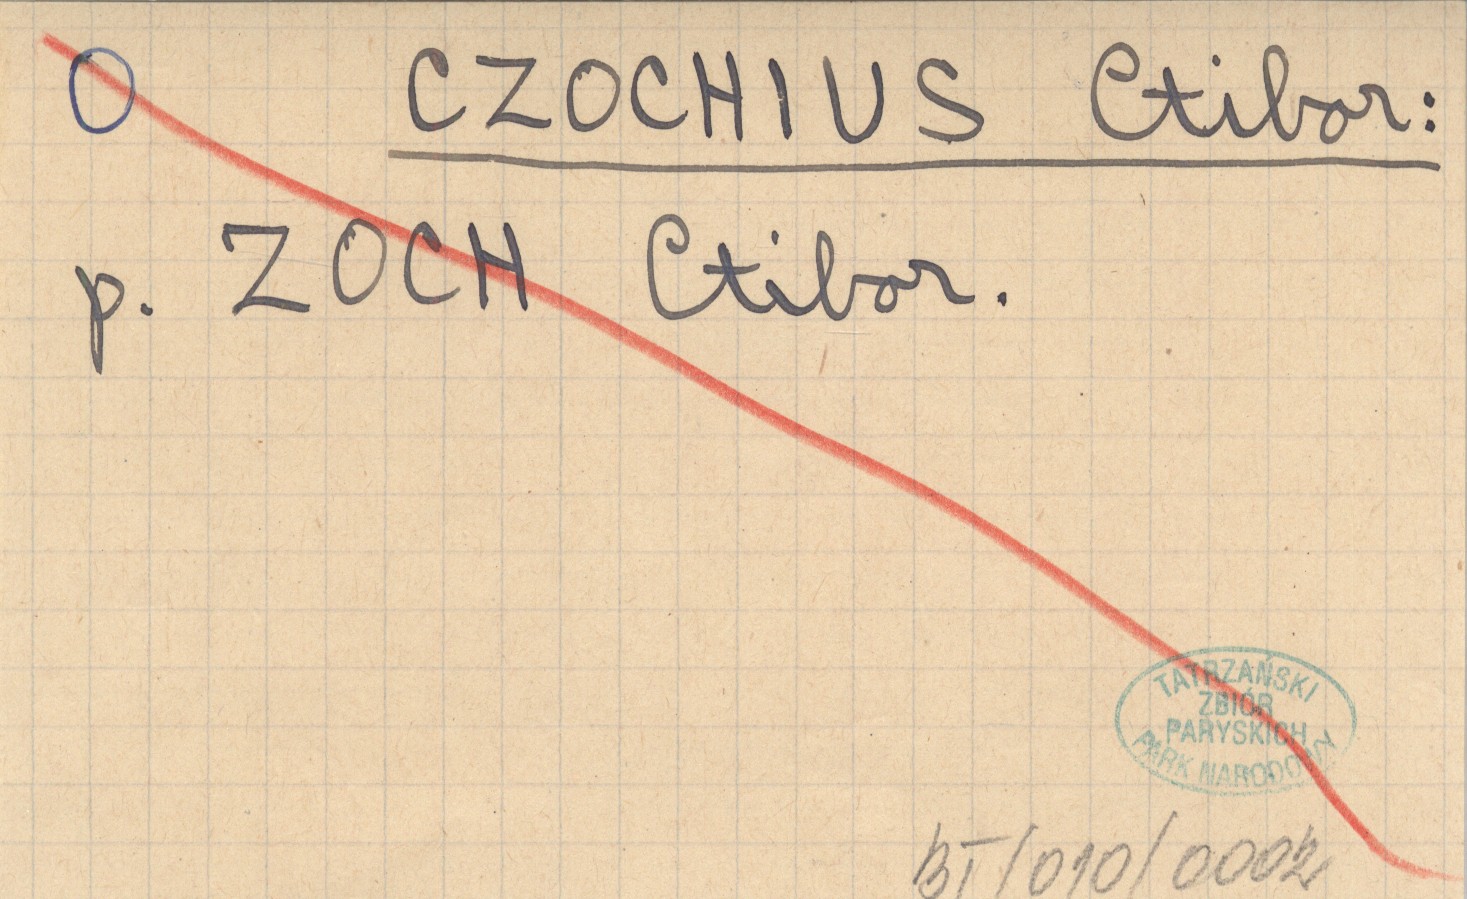 O CZOCHIUS Ctibor:
p. ZOCH Ctibor.
TATRZAŃSKI
ZBIÓR
PARYSKICH
PARK NARODOWY
BT/010/0002